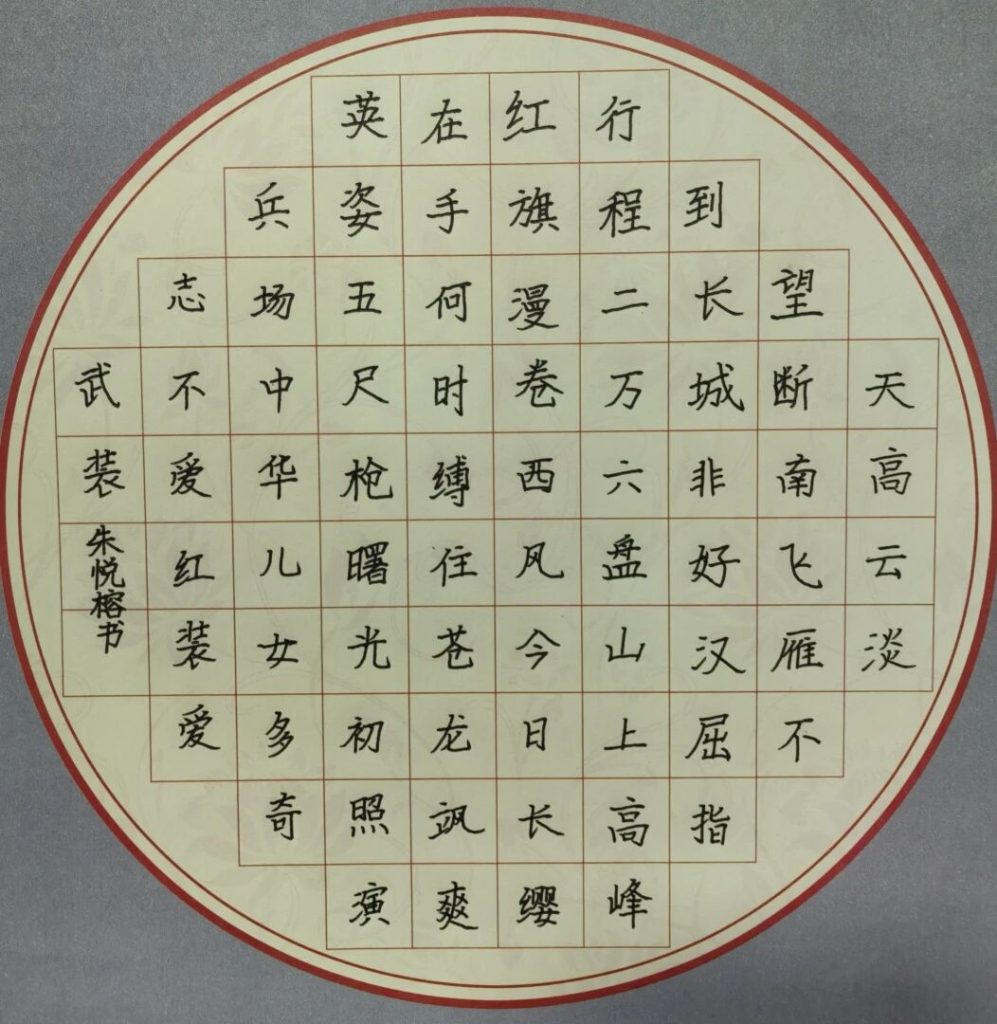 天高云淡
望断南飞雁不
到长城非好汉屈指
行程二万六盘山上高峰
红旗漫卷西风今日长缨
在手何时缚住苍龙飒爽
英姿五尺枪曙光初照演
兵场中华儿女多奇
志不爱红装爱
武装
朱悦榕书